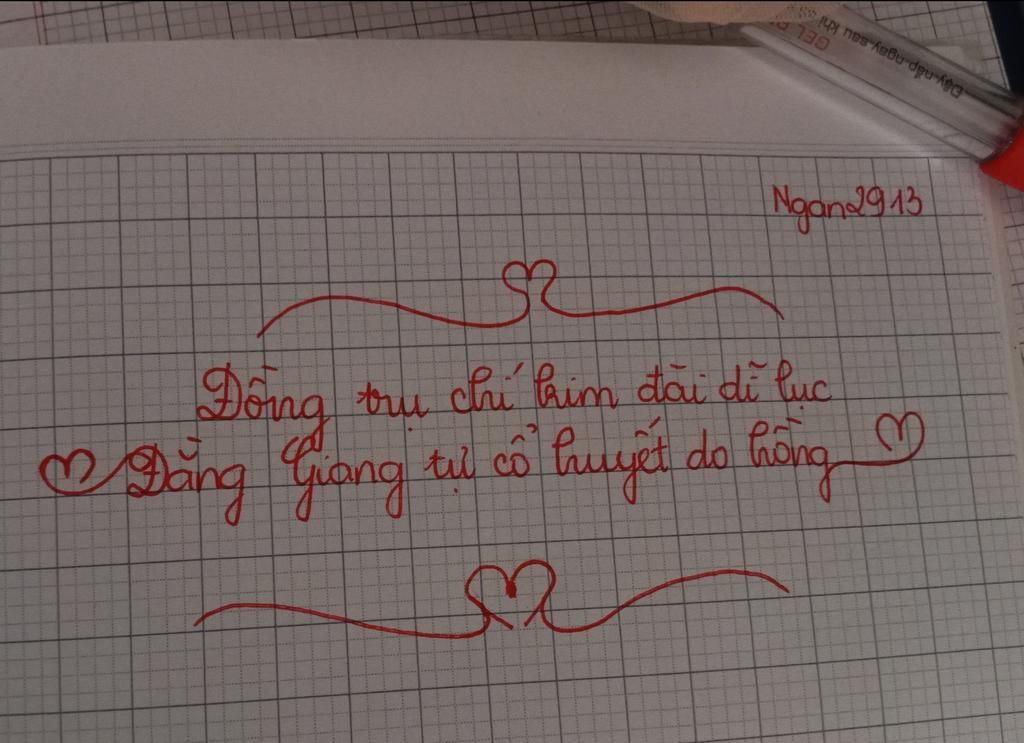 GEL
Đậy-nắp-ngay-sau khi
Ngan2913
Đồng trụ chí kim đài dĩ lục
Đằng Giang tự cổ huyết do hồng